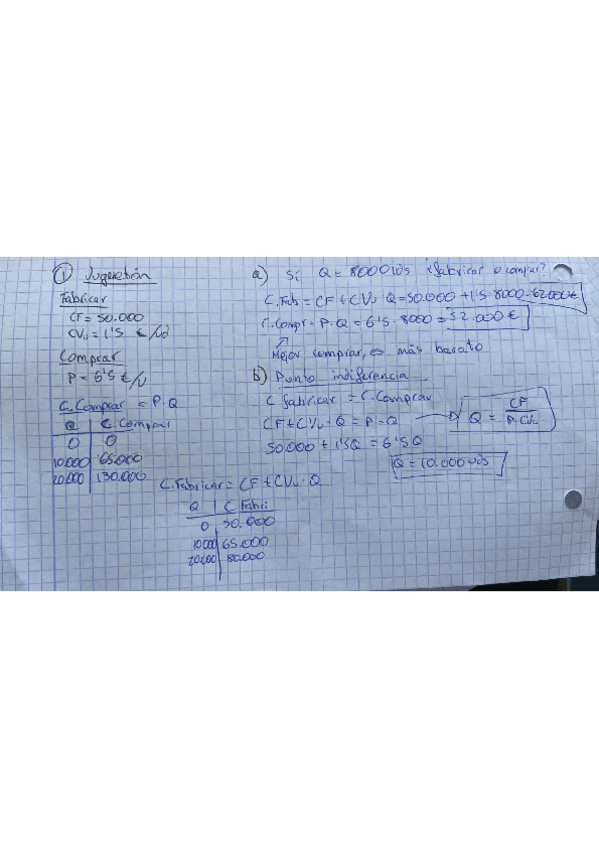 ① Juguetrón
Fabricar
CF = 50.000
CVu = 1'5 €/ud
Comprar
P = 6'5 €/u
C. Comprar = P.Q
Q C. Comprar
0 0
10.000 65.000
20.000 130.000
C. Fabricar = CF + CVu · Q
Q C Fabri
0 50.000
10.000 65.000
20.000 80.000
a) Si Q = 8000 uds ¿fabricar o comprar?
C. Fab = CF + CVu · Q = 50.000 + 1'5 · 8000 = 62.000 €
C. Compr = P. Q = 6'5 · 8000 = 52.000 €
Mejor comprar, es más barato
b) Punto indiferencia
C fabricar = C. Comprar
CF + CVu · Q = P · Q → Q = CF
50.000 + 1'5Q = 6'5Q
Q = 10.000 uds